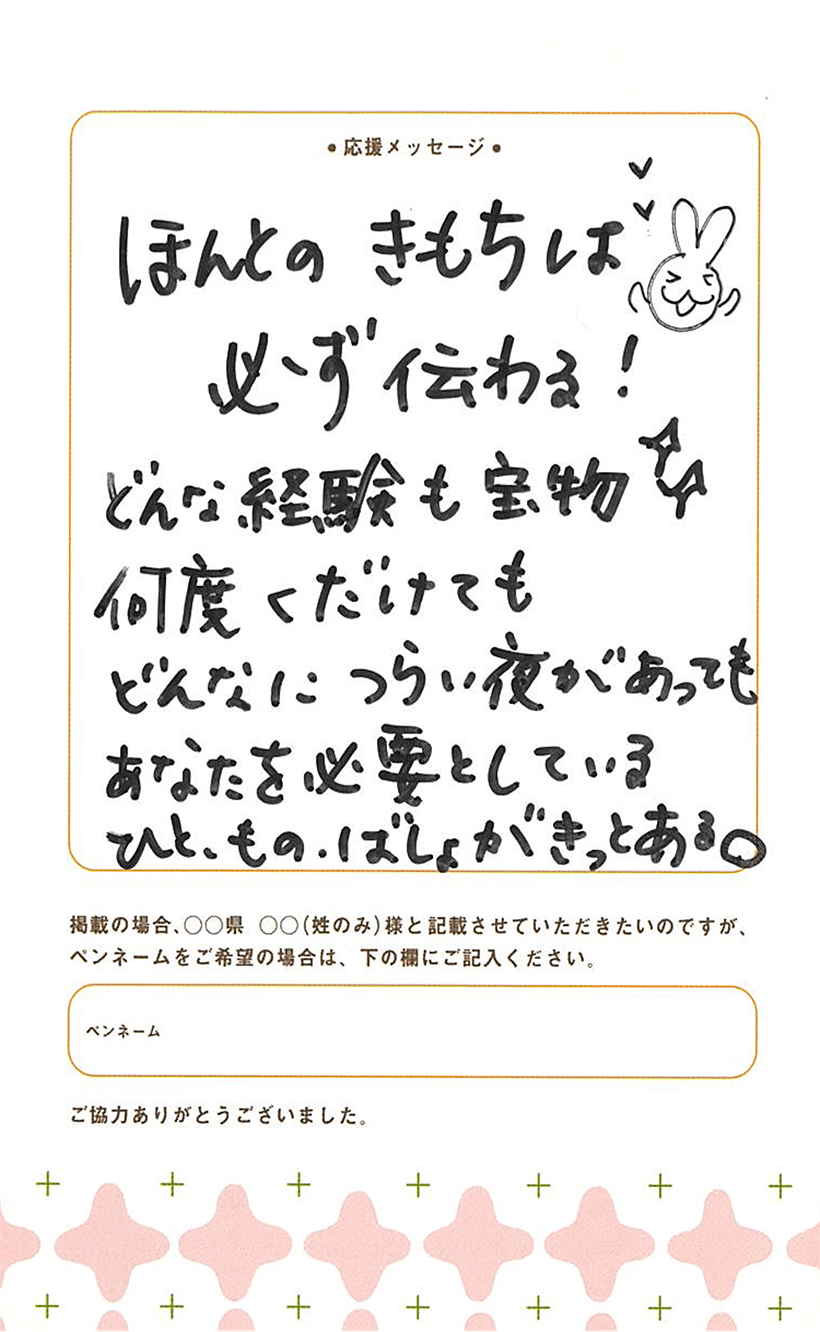 •応援メッセージ•
ほんとの きもちは
必ず伝わる!
どんな経験も宝物
何度くだけても
どんなに つらい夜があっても
あなたを必要としている
ひと、もの.ばしょがきっとある。
掲載の場合、〇〇県 〇〇(姓のみ)様と記載させていただきたいのですが、
ペンネームをご希望の場合は、下の欄にご記入ください。
ペンネーム
ご協力ありがとうございました。